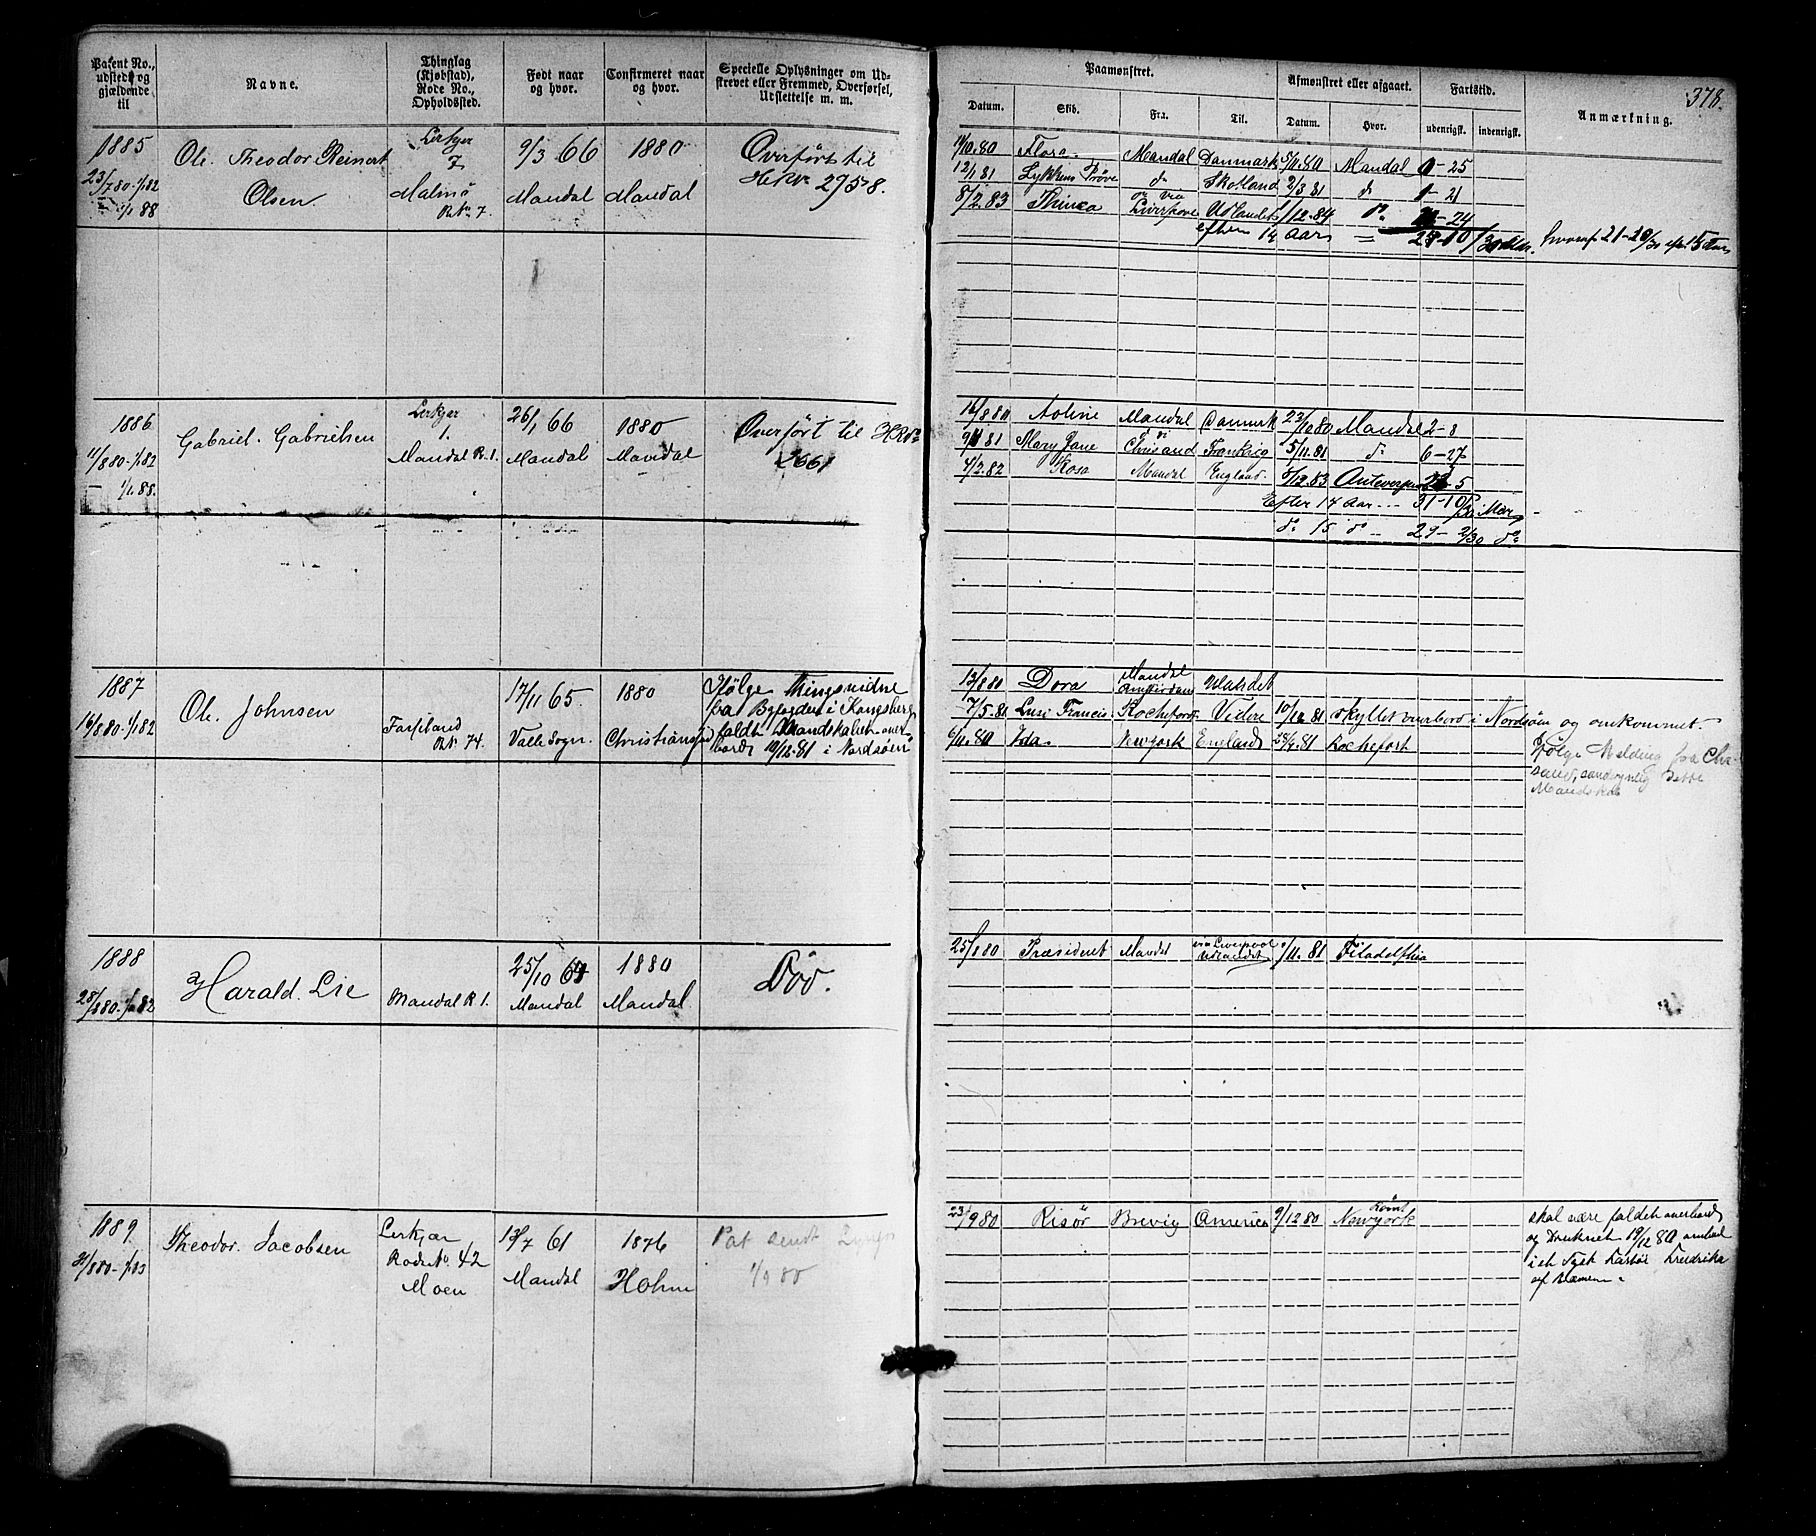 378.
Patent No., udstedt og gjældende til
Navne.
Thinglag (Kjøbstad), Rode No., Opholdssted.
Født naar og hvor.
Confirmeret naar og hvor.
Specielle Oplysninger om Udstrevet eller Fremmed, Overførsel, Udslettelse m. m.
Paamønstret.
Afmønstret eller afgaaet.
Fartstid.
Anmærkning.
Datum. Skib. Fra. Til. Datum. Hvor. udenrigsk. indenrigsk.
1885
23/7 80 - 1/1 82
— 1/1 88
Ole Theodor Reinert
Olsen
Lerkjær
7
Malmø
R. No 7.
9/3 66
Mandal
1880
Mandal
Overført til
HRNo 2758.
14/10.80 Flora Mandal Danmark 5/11.80 Mandal 0-25
12/1 81 Lykkens Prøve do Skotland 2/3 81 do 1-21
8/2.83 Thinca do via Liverpool Udlandet 1/12.84 do
efter 14 Aar
1886
11/8 80 - 1/1 82
— 1/1 88.
Gabriel Gabrielsen
Lerkjær
1.
Mandal R 1.
26/1 66
Mandal
1880
Mandal
Overført til HRNo
2661
16/8 80 Aoline Mandal Danmark 23/10 80 Mandal 2-8
81 Mary Jane Chrisand Frankrig 5/11.81 do 6-27
4/2.82 Rosa Mandal England 83 Antwerpen
Efter 14 Aar
do 15 do - 29- 2/30 do
1887
16/8 80 - 1/1 82
Ole Johnsen
Farsland
R. No 74.
17/11 65.
Valle Sogn.
1880
Christianssand
Ifølge Thingsvidne
fra Byfogden i Kongsberg
faldt Mandskabet over
bord 10/12.81 i Nordsøen
13/8 80 Dora Mandal Amsterdam Udlandet
7/5.81 Luci Francis Rochefort Videre 10/12 81 skyllet overbord i Nordsøen og omkommet.
6/11.80 Ida Newyork England 28/4.81 Rochefort
Ifølge Melding fra Chr-
sand, sandsynlig dette
Mandskab
1888
28/8 80 - 1/1 82
Harald Lie
Mandal R 1.
25/10 64
Mandal
1880
Mandal
Død.
25/8 80 Præsident Mandal via Liverpool Udlandet /11.81 Filadelfia
1889
31/8 80 - 1/1 83
Theodor Jacobsen
Lerkjær
Rode No. 42
Moen
13/7 61
Mandal
1876
Holme
Pat sendt
1/9 80
23/9 80 Risør Brevig America 9/12 80 Rømt Newyork
skal være faldet overbord
og Druknet 19/12 80, ombord
i et Tysk Fartøi Fredrika
af Bremen